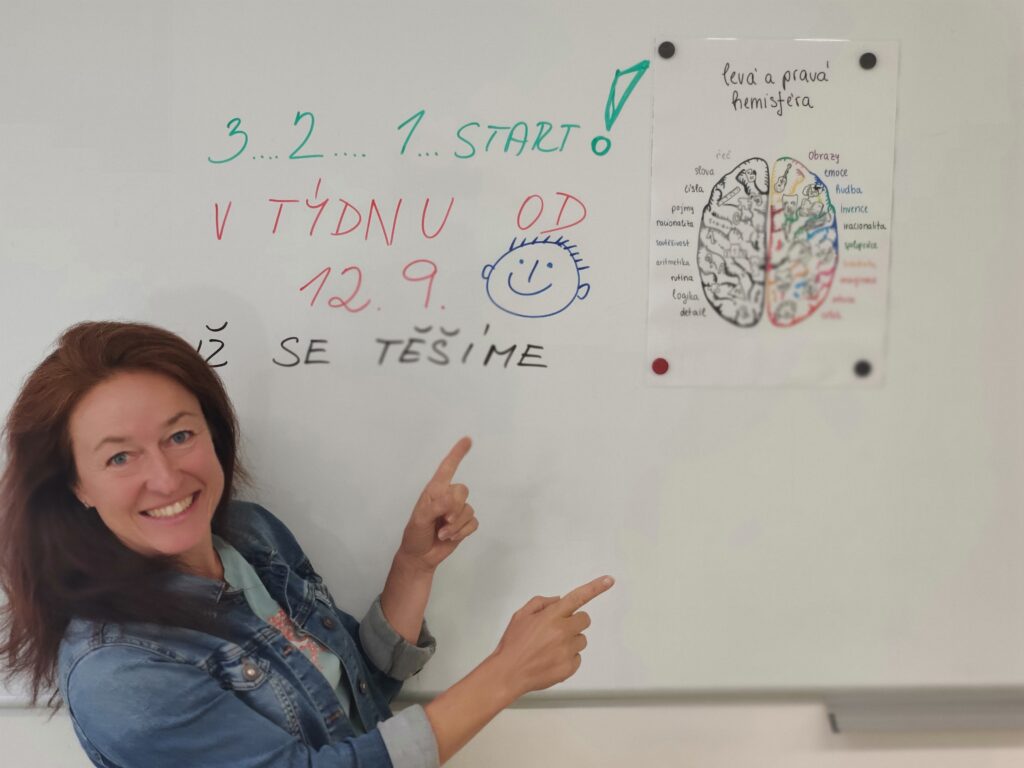 3....2.... 1... START!
V TÝDNU OD
12.9.
SE TĚŠÍME
levá a pravá
hemisféra
řeč
slova
čísla
pojmy
racionalita
součinnost
aritmetika
rutina
logika
detail
obrazy
emoce
hudba
invence
iracionalita
spolupráce